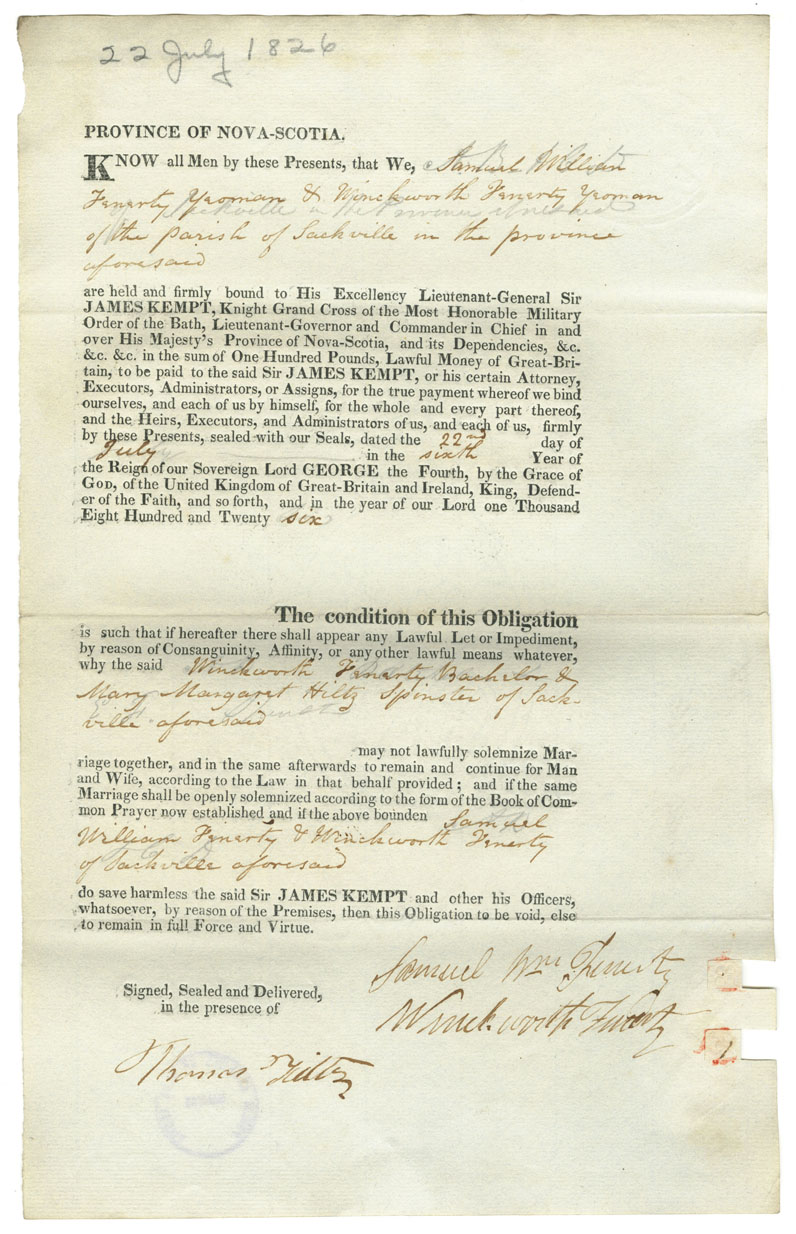 22 July 1826
PROVINCE OF NOVA-SCOTIA.
KNOW all Men by these Presents, that We, Samuel William
Fenerty Yeoman & Winckworth Fenerty Yeoman
of the parish of Sackville in the province
aforesaid
are held and firmly bound to His Excellency Lieutenant-General Sir
JAMES KEMPT, Knight Grand Cross of the Most Honorable Military
Order of the Bath, Lieutenant-Governor and Commander in Chief in and
over His Majesty's Province of Nova-Scotia, and its Dependencies, &c.
&c. &c. in the sum of One Hundred Pounds, Lawful Money of Great-Bri-
tain, to be paid to the said Sir JAMES KEMPT, or his certain Attorney,
Executors, Administrators, or Assigns, for the true payment whereof we bind
ourselves, and each of us by himself, for the whole and every part thereof,
and the Heirs, Executors, and Administrators of us, and each of us, firmly
by these Presents, sealed with our Seals, dated the 22nd day of
July in the sixth Year of
the Reign of our Sovereign Lord GEORGE the Fourth, by the Grace of
GOD, of the United Kingdom of Great-Britain and Ireland, King, Defend-
er of the Faith, and so forth, and in the year of our Lord one Thousand
Eight Hundred and Twenty six
The condition of this Obligation
is such that if hereafter there shall appear any Lawful Let or Impediment,
by reason of Consanguinity, Affinity, or any other lawful means whatever,
why the said Winckworth Fenerty Bachelor &
Mary Margaret Hiltz Spinster of Sack-
ville aforesaid
may not lawfully solemnize Mar-
riage together, and in the same afterwards to remain and continue for Man
and Wife, according to the Law in that behalf provided; and if the same
Marriage shall be openly solemnized according to the form of the Book of Com-
mon Prayer now established and if the above bounden Samuel
William Fenerty & Winckworth Fenerty
of Sackville aforesaid
do save harmless the said Sir JAMES KEMPT and other his Officers,
whatsoever, by reason of the Premises, then this Obligation to be void, else
to remain in full Force and Virtue.
Samuel Wm Fenerty
Signed, Sealed and Delivered,
in the presence of
Winckworth Fenerty
Thomas Hiltz